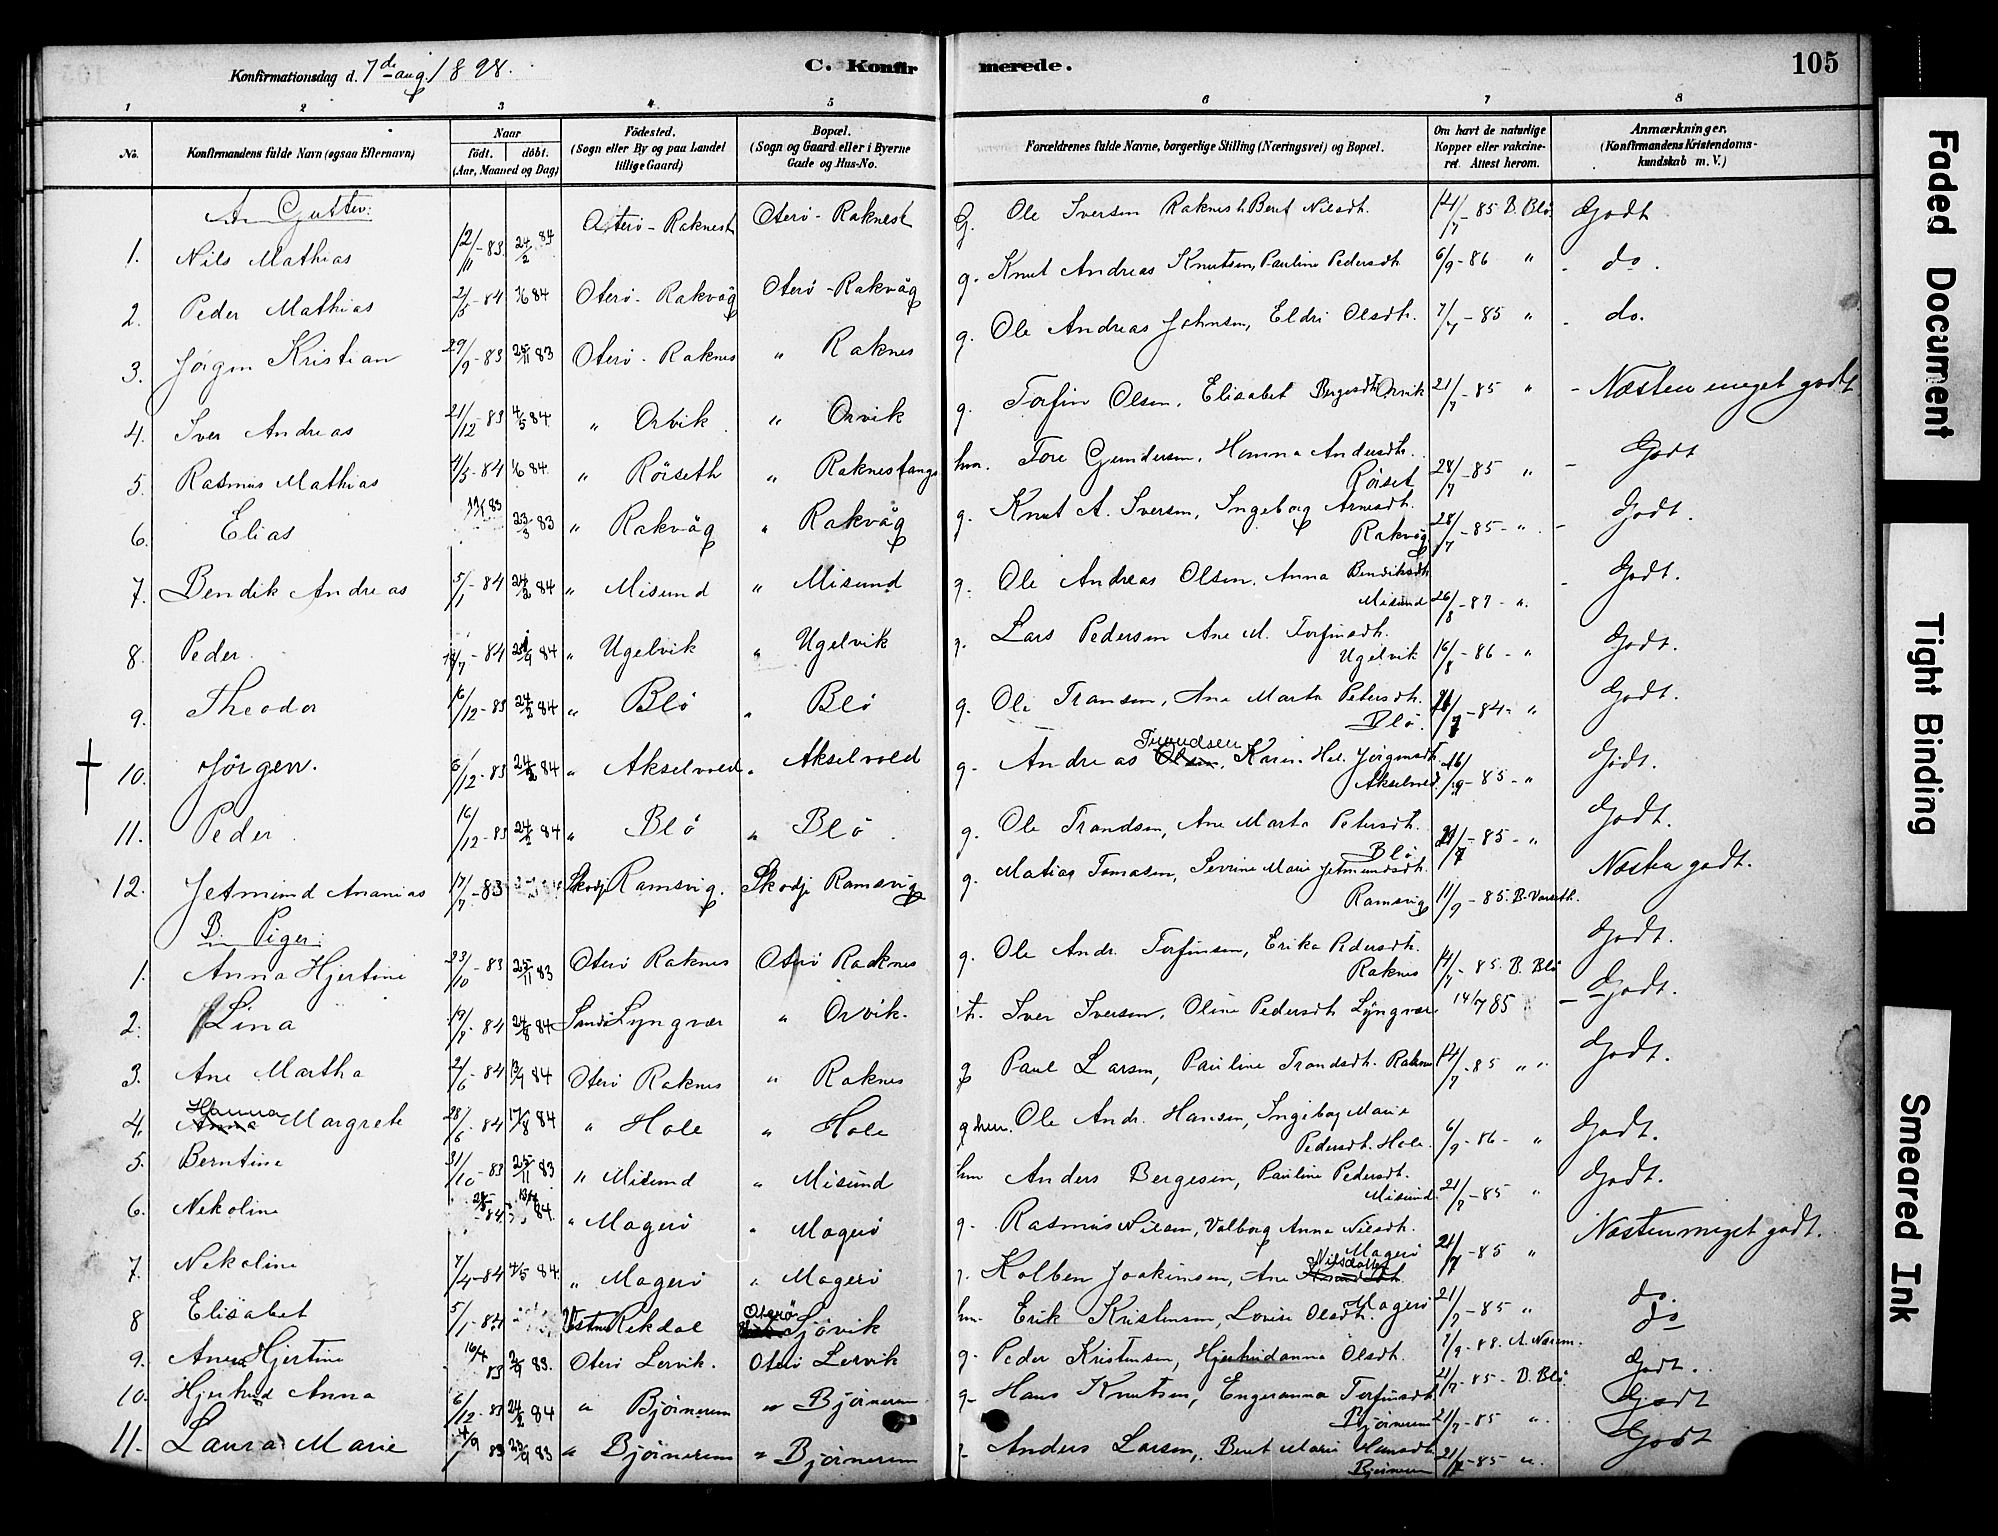 Konfirmationsdag d. 7de aug. 1898.
C. Konfirmerede.
105
1 2 3 4 5 6 7 8
No.
Konfirmandens fulde Navn (ogsaa Efternavn)
Naar
födt. döbt.
(Aar, Maaned og Dag)
Födested.
(Sogn eller By og paa Landet
tillige Gaard)
Bopæl.
(Sogn og Gaard eller i Byerne
Gade og Hus-No.
Forældrenes fulde Navne, borgerlige Stilling (Næringsvei) og Bopæl.
Om havt de naturlige
Kopper eller vakcine-
ret. Attest herom.
Anmærkninger.
(Konfirmandens Kristendoms-
kundskab m. V.)
A. Gutter:
1. Nils Mathias 12/11-83 24/2 84 Oterö-Raknest Oterö-Raknest g. Ole Iversen Raknest. Beret Nilsdt. 14/7-85 B. Blö Godt
2. Peder Mathias 2/5-84 1/6 84 Oterö-Rakväg Oterö-Rakväg g. Knut Andreas Knutsen, Pauline Pedersdt. 6/9-86 " - do.
3. Jørgen Kristian 29/9-83 25/11 83 Oterö-Raknes " Raknes g. Ole Andreas Johnsen, Eldri Olsdt. 7/7-85 " - do.
4. Iver Andreas 21/12-83 4/5 84 " Orvik " Orvik g. Torfin Olsen, Elisabet Bergesdt. Orvik 21/7-85 " - Næsten meget godt
5. Rasmus Mathias 4/5-84 1/6 84. " Röiseth " Raknestangs hm. Tore Gundersen, Hanna Andersdt. Röiset 28/7-85 " - Godt
6. Elias 83 23/3 83 " Rakväg " Rakväg g. Knut A. Iversen, Ingeborg Arnesdt. Rakväg 28/7-85-" - Godt.
7. Bendik Andreas 5/1-84 24/2 84 " Misund " Misund g. Ole Andreas Olsen, Anna Bendiksdt. Misund 26/8-87-" - Godt.
8. Peder -84 84 " Ugelvik " Ugelvik g. Lars Pedersen Ane M. Torfinsdt. Ugelvik 16/8-86-" Godt.
9. Theodor 16/12-83 24/2 84 " Blö " Blö g. Ole Transen, Ane Marta Petersdt. Blö. -84-" Godt.
10. Jörgen. 6/12-83 24/2 84 " Akselvold " Akselvold g. Andreas Olsen, Karen Hel. Jörgensdt. Akselvold -85-" Godt.
11. Peder 16/12-83 24/2 84 " Blö " Blö g. Ole Trandsen, Ane Marta Petersdt. Blö 21/7-85-" Godt.
12. Jetmund Ananias 17/7-83 Skodje Ramsvig. Skodje Ramsvig g. Matias Tomasen, Sevrine Marie Jetmundsdt. Ramsvig 11/9-85. B. Næsten godt.
B. Piger:
1. Anna Hjertine 23/10-83 25/11 83 Oterö Raknes Oterö Raknes g. Ole Andr. Torfinsen, Erika Pedersdt. Raknes 14/7-85. B. Blö Godt.
2. Lina 19/7-84 24/8 84 Sandö Lyngvær " Orvik. Iver Iversen, Oline Pedersdt Lyngvær 14/7 85 - Godt.
3. Ane Martha 2/6-84 13/7 84 Oterö Raknes " Raknes g Paul Larsen, Pauline Trandsdt. Raknes 14/7-85 " " Godt.
4. Hanna Anna Margrete 28/6-84 17/8 84 " Hole " Hole g. Ole Andr. Hansen, Ingeborg Marie Pedersdt. Hole. 6/9-86-" Godt.
5. Berntine 31/10-83 25/11 83 " Misund " Misund hm Anders Bergesen, Pauline Pedersdt. Misund. 21/7-85 " Godt.
6. Nekoline -84 84. " Magerö " Magerö g. Rasmus Nilsen, Valborg Anna Nilsdt. Magerö 21/7-85 " Næsten meget godt.
7. Nekoline 7/4-84 4/5 84. " Magerö " Magerö Kolben Joakimsen, Ane Nilsdatter Magerö 21/7-85 " do.
8 Elisabet 5/1-84 Vestnes Rekdal Oterö Sjövik hm. Erik Kristensen, Lovise Olsdt. 7/9-88. do
9. Ane Hjertine 16/4 83 83. Oterö Lervik. Oterö Lervik g. Peder Kristensen, Hjertrudanna Olsdt. 21/7-85-B. Blö. Godt.
10. Hjertrud Anna 6/12-83 24/2 84 " Björnerem " Björnerem g- Hans Knutsen, Engeranna Torfinsdt. Björnerem 21/7-85 " Godt
11- Laura Marie 4/9 83 23/9 83 " Björnerem " Björnerem Anders Larsen, Beret Marie Hansdt. Björnerem 21/7-85 " Godt
Faded Document
Tight Binding
Smeared Ink